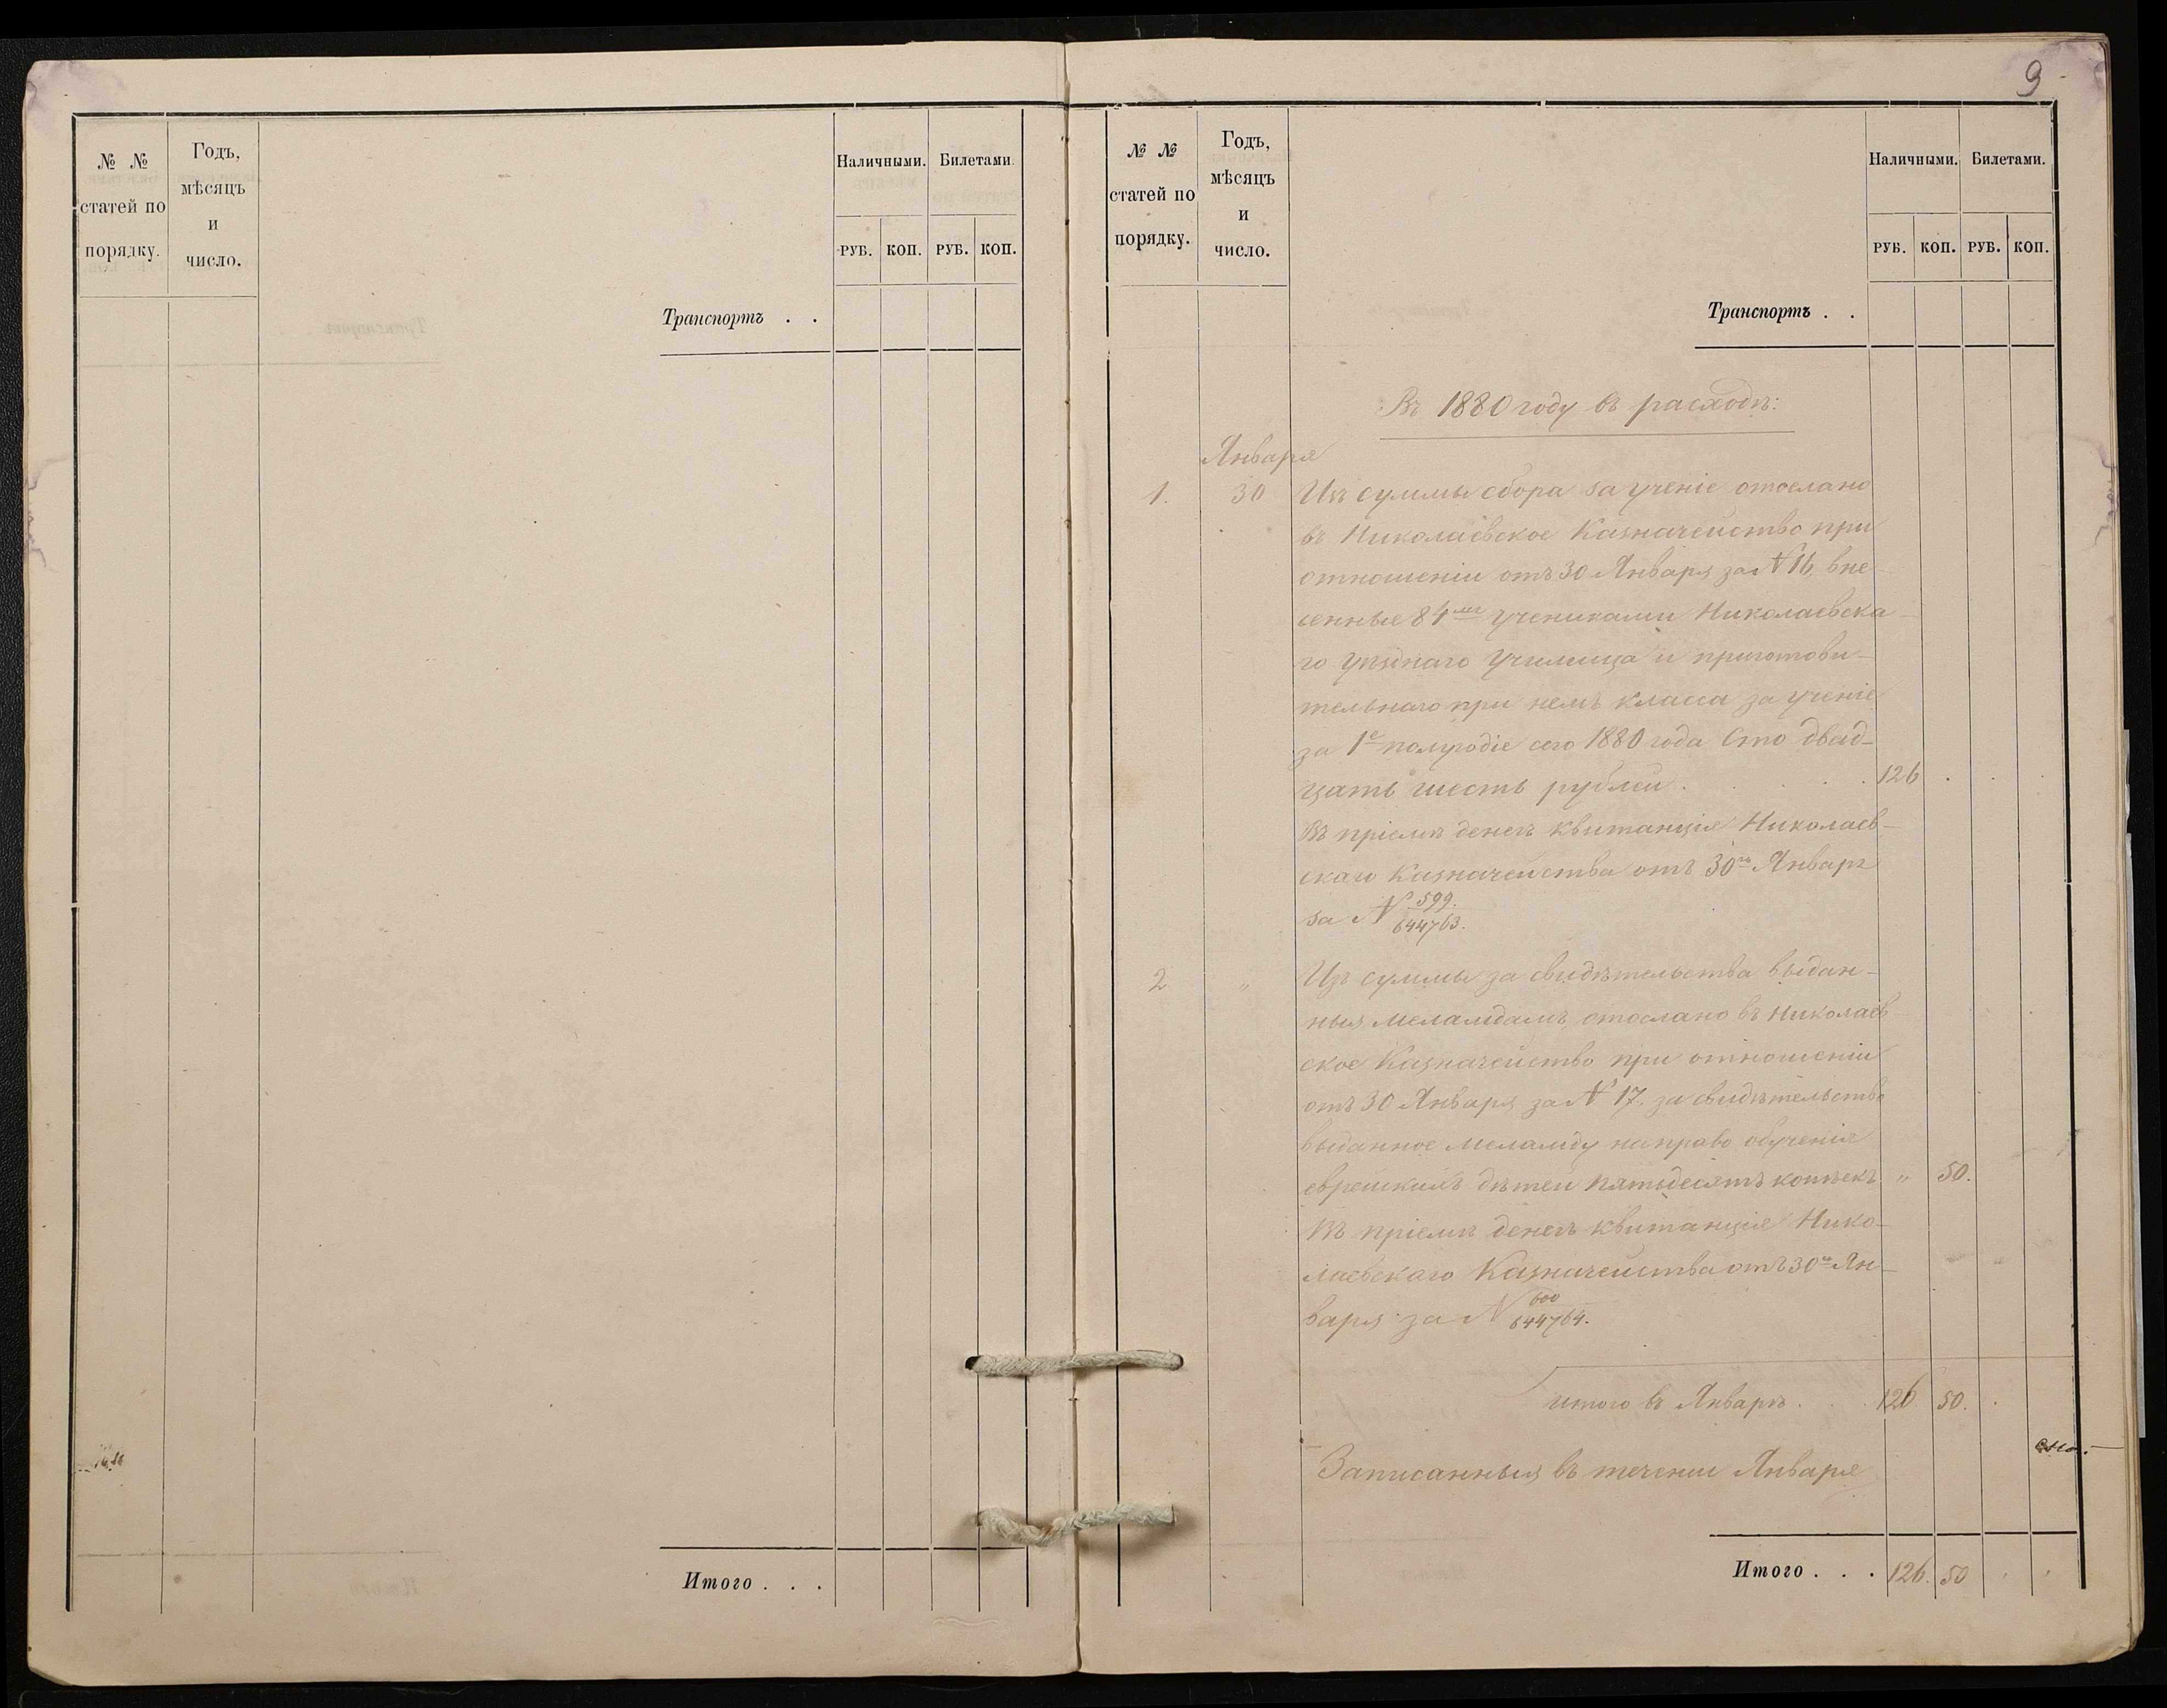 № №
статей по
порядку.
Годъ,
мѣсяцъ
и
число.
Наличными.
Билетами.
РУБ.
КОП.
РУБ.
КОП.
Транспортъ . .
Итого . . .
9
№ №
статей по
порядку.
Годъ,
мѣсяцъ
и
число.
Наличными.
Билетами.
РУБ.
КОП.
РУБ.
КОП.
Транспортъ . .
Въ 1880 году въ расходъ:
Января
1. 30 Изъ суммы сбора за ученіе отослано
въ Николаевское Казначейство при
отношеніи отъ 30 Января за № 16, вне
сенные 84мя учениками Николаевска
го уѣзднаго училища и приготови-
тельнаго при немъ класса за ученіе
за 1е полугодіе сего 1880 года Сто двад-
цать шесть рублей . . . . 126 .
Въ пріемѣ денегъ квитанція Николаев-
скаго Казначейства отъ 30го Января
за № 599.
644763.
2 " Изъ суммы за свидѣтельства выдан-
ныя меламдамъ, отослано въ Николаев
ское Казначейство при отношеніи
отъ 30 Января за № 17. за свидѣтельство
выданное меламду на право обученія
еврейскихъ дѣтей пятьдесятъ копѣекъ " 50.
Въ пріемѣ денегъ квитанція Нико-
лаевскаго Казначейства отъ 30го Ян-
варя за № 600
644764.
итого въ Январѣ . . 126 50.
Записанныя въ теченіи Января
Итого . . . 126. 50